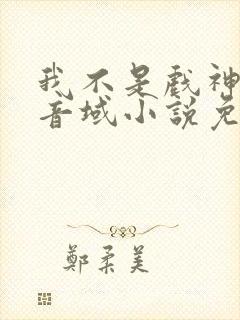 我不是戲神
音域小說免
鄭柔美